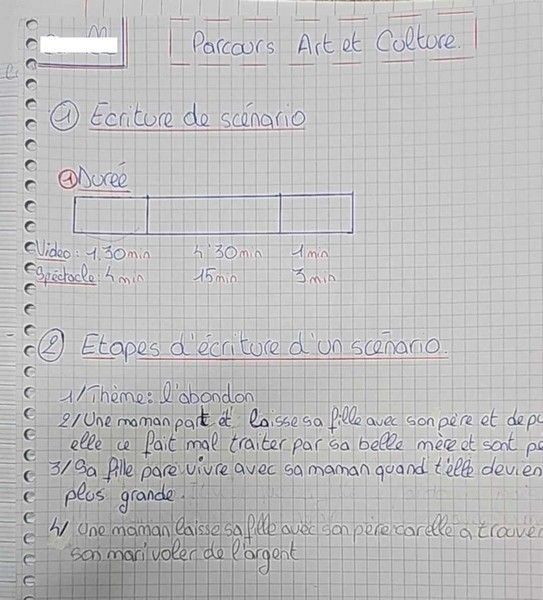 M
Parcours Art et Culture.
1 Ecriture de scénario
1 Dureé
Video : 1.30 min 4'30 min 1 min
Spéctacle : 4 min 15 min 3 min
2 Etapes d'écriture d'un scénario.
1/ Thème : l'abandon
2/ Une maman part et laisse sa fille avec son père et depu
elle ce fait mal traiter par sa belle mère et sont pe
3/ Sa fille pare vivre avec sa maman quand t'elle devien
plus grande.
4/ Une maman laisse sa fille avec son père car elle a trouver
son mari voler de l'argent